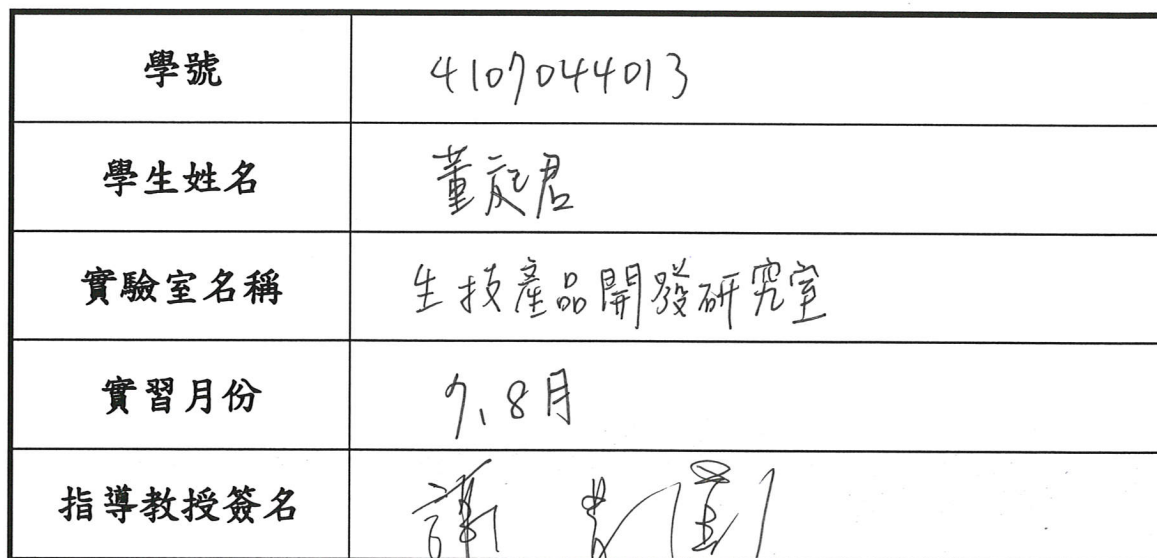 學號 4107044013
學生姓名 董庭君
實驗室名稱 生技產品開發研究室
實習月份 7、8月
指導教授簽名